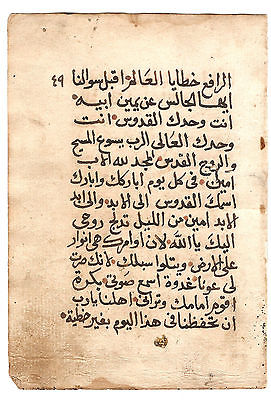 الرافع خطايا العالم اقبل سوالنا ٤٩
ايها الجالس عن يمين ابيه
انت وحدك القدوس انت
وحدك العالى الرب يسوع المسيح
والروح القدس لمجد لله الاب
امين في كل يوم اباركك وابارك
اسمك القدوس الى الابد والى ابد
الابد امين من الليل تدلج روحي
اليك يا الله لان اوامرك هي انوار
على الارض ويتلوا سبلك لانك صرت
لي عونا غدوة اسمع صوتي بكرة
اقوم امامك وتراني اهلنا يارب
ان تحفظنا في هذا اليوم بغير خطية